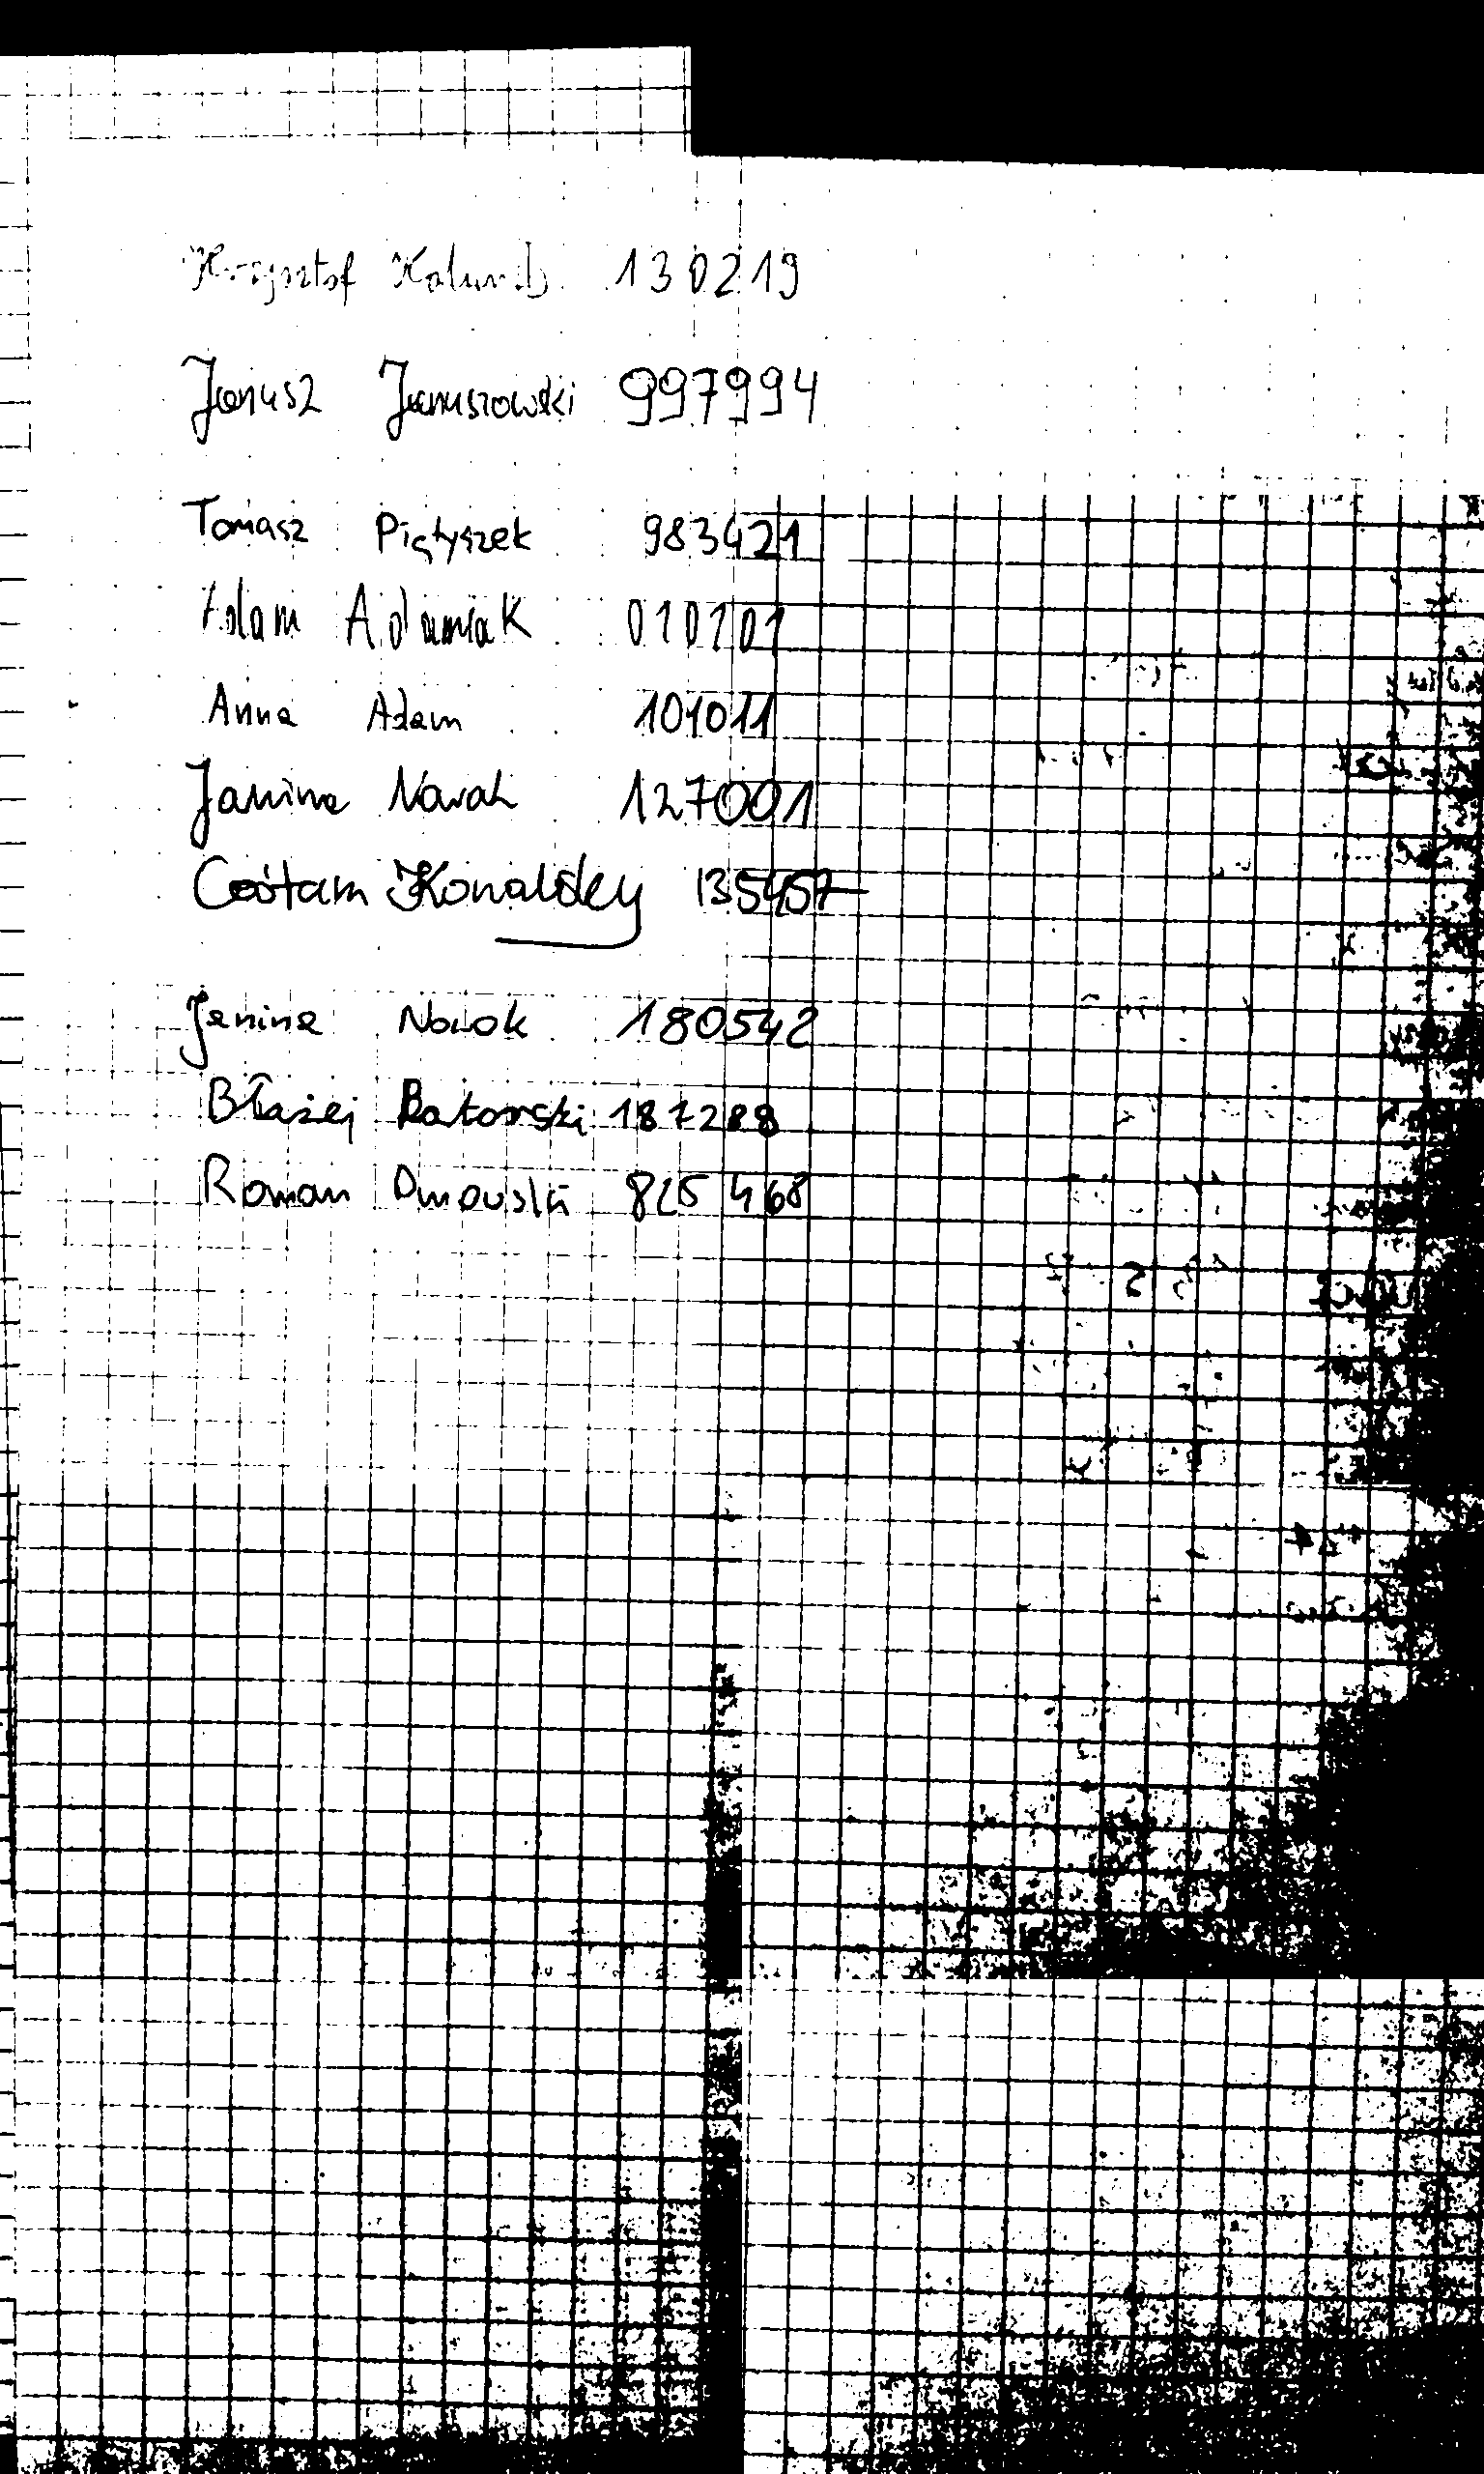 Krzysztof 130219
Janusz Januszowski 997994
Tomasz Piątyszek 983421
Adam Adamiak 010101
Anna Adam 101011
Janina Nowak 127001
Kowalsky 135457
Janina Nowak 180542
Błażej Batorski 187288
Roman Dmowski 825468